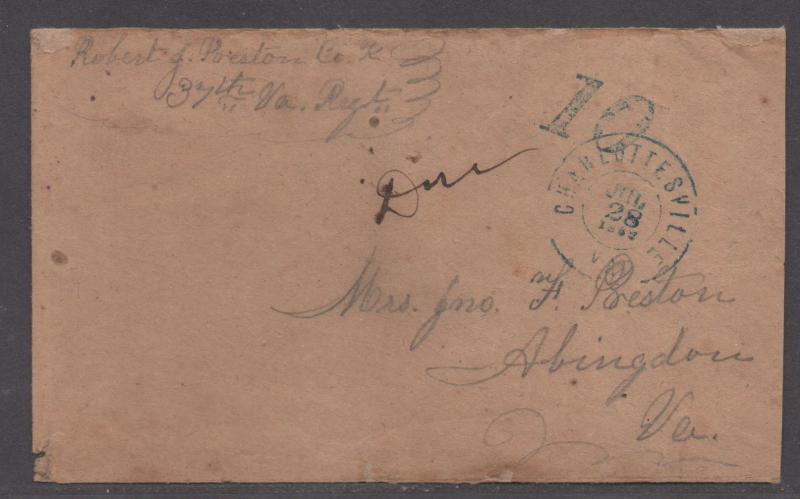 Robert J. Preston Co. K
37th Va. Regt.
10
Due
CHARLOTTESVILLE
JUL
28
1862
VA
Mrs. Jno. F. Preston
Abingdon
Va.